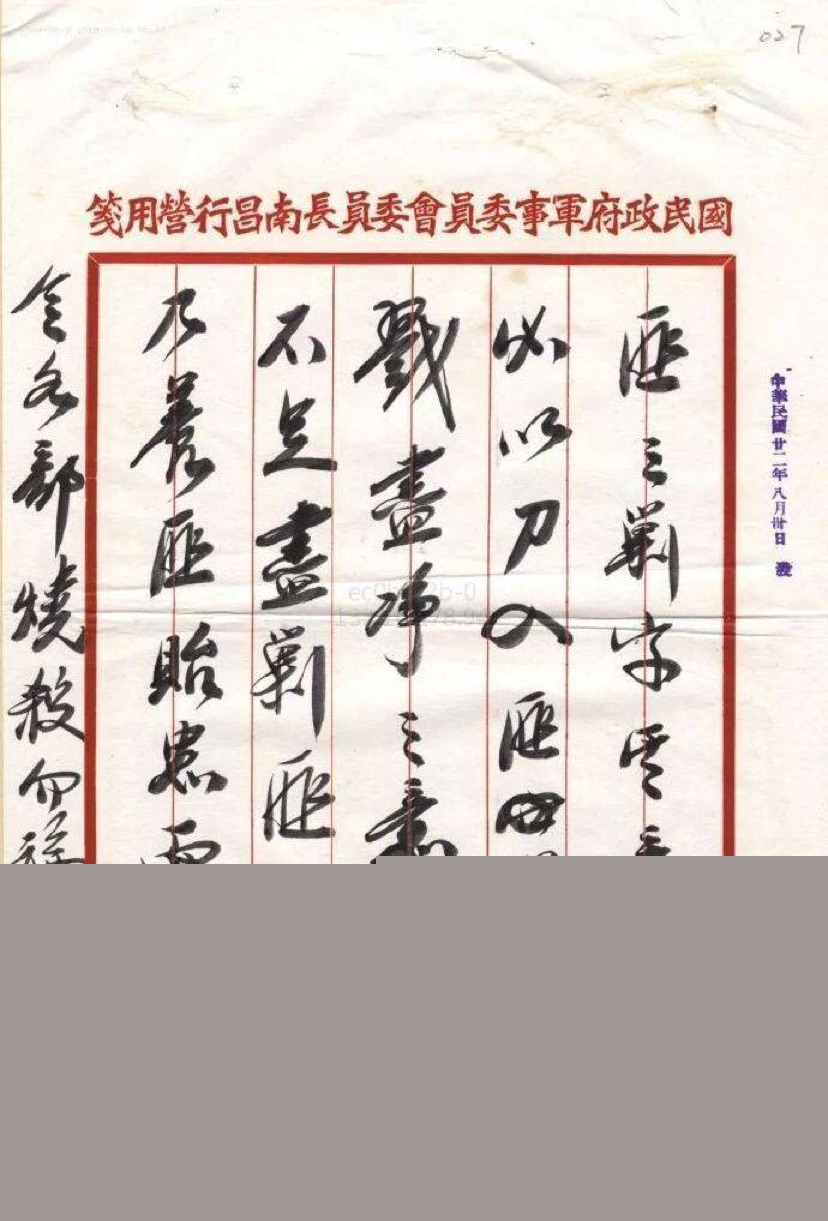 027
國民政府軍事委員會委員長南昌行營用箋
中華民國廿二年八月卅日 發
匪之剿字
必以刀入匪
戮盡淨之意
不足盡剿匪
乃養匪貽患而
令各部燒殺勿稍